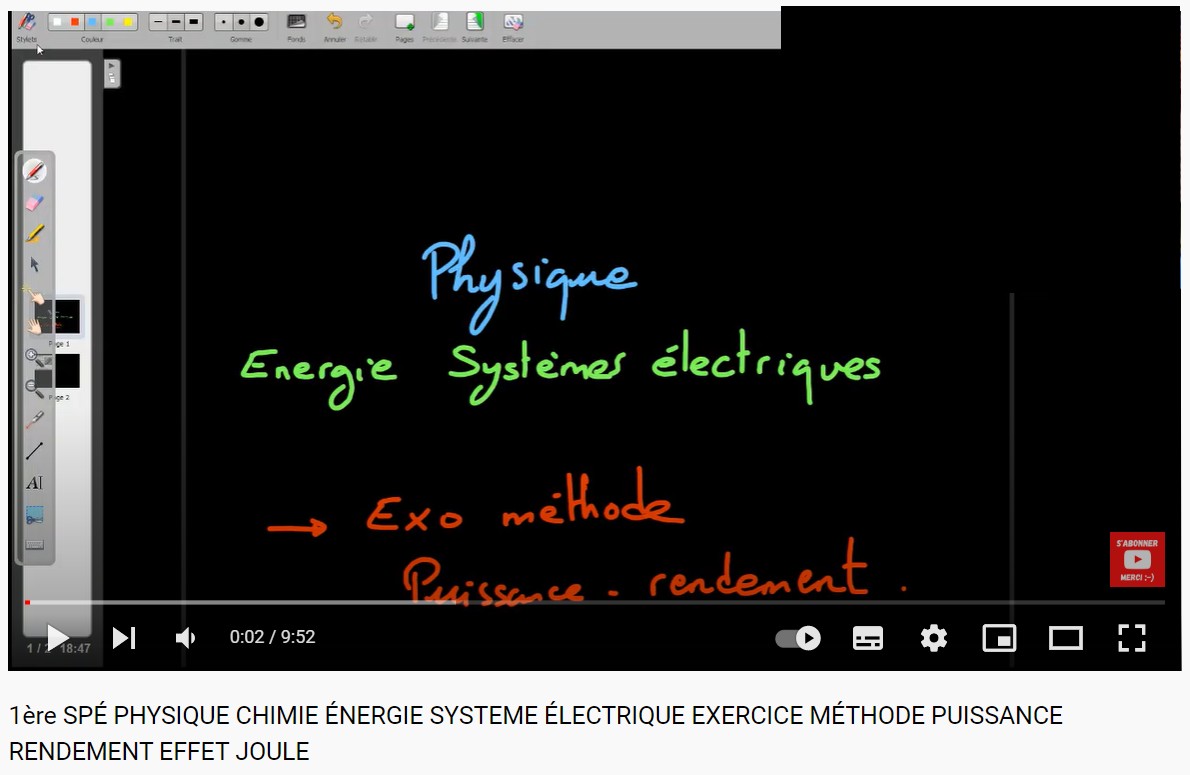 Stylets Couleur Trait Gomme Fonds Annuler Rétablir Pages Précédente Suivante Effacer
Physique
Energie Systèmes électriques
→ Exo méthode
Puissance - rendement.
Page 1
Page 2
AI
S'ABONNER
MERCI ;-)
1 / 2 18:47
0:02 / 9:52
1ère SPÉ PHYSIQUE CHIMIE ÉNERGIE SYSTEME ÉLECTRIQUE EXERCICE MÉTHODE PUISSANCE
RENDEMENT EFFET JOULE